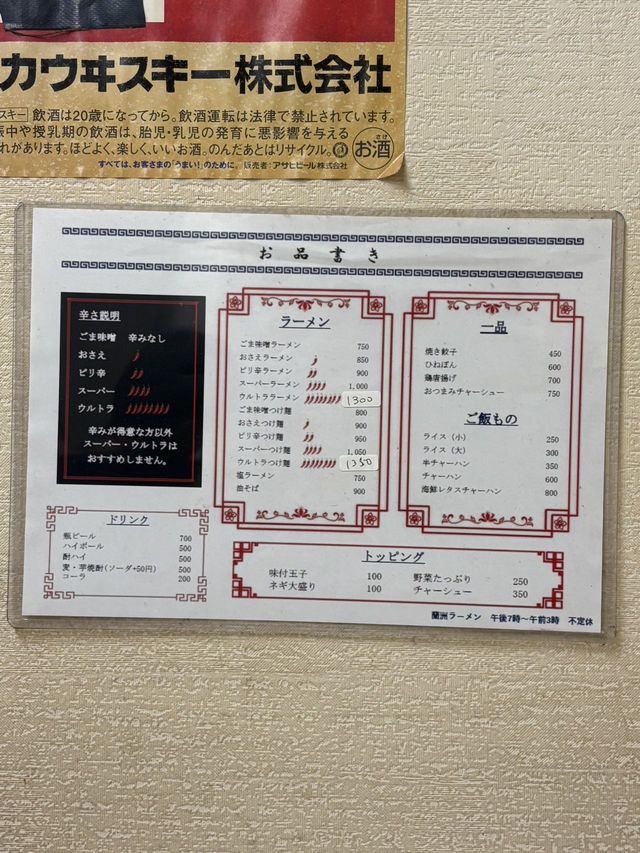 カウヰスキー株式会社
スキー 飲酒は20歳になってから。飲酒運転は法律で禁止されています。
娠中や授乳期の飲酒は、胎児・乳児の発育に悪影響を与える
れがあります。ほどよく、楽しく、いいお酒。のんだあとはリサイクル。
お酒
すべては、お客さまの「うまい!」のために。 販売者:アサヒビール株式会社
お品書き
辛さ説明
ごま味噌 辛みなし
おさえ
ピリ辛
スーパー
ウルトラ
辛みが得意な方以外
スーパー・ウルトラは
おすすめしません。
ラーメン
ごま味噌ラーメン 750
おさえラーメン 850
ピリ辛ラーメン 900
スーパーラーメン 1,000
ウルトララーメン 1300
ごま味噌つけ麺 800
おさえつけ麺 900
ピリ辛つけ麺 950
スーパーつけ麺 1,050
ウルトラつけ麺 1350
塩ラーメン 750
油そば 900
一品
焼き餃子 450
ひねぽん 600
鶏唐揚げ 700
おつまみチャーシュー 750
ご飯もの
ライス(小) 250
ライス(大) 300
半チャーハン 350
チャーハン 600
海鮮レタスチャーハン 800
ドリンク
瓶ビール 700
ハイボール 500
酎ハイ 500
麦・芋焼酎(ソーダ+50円) 500
コーラ 200
トッピング
味付玉子 100 野菜たっぷり 250
ネギ大盛り 100 チャーシュー 350
蘭洲ラーメン 午後7時~午前3時 不定休